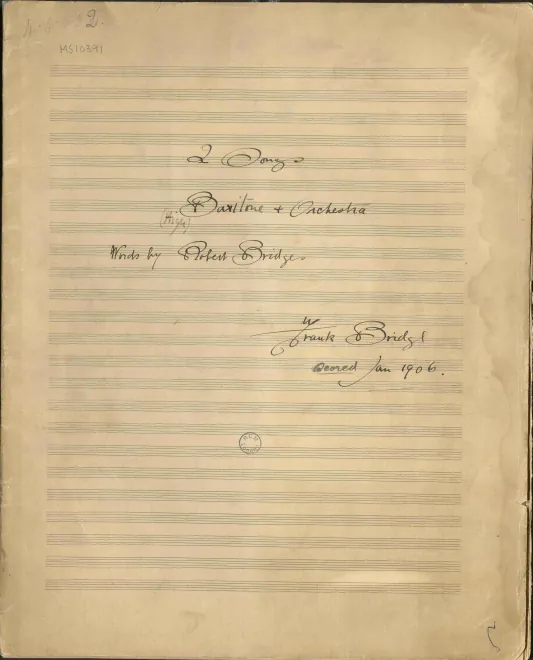 2.
MS10391
2 Songs
Baritone + Orchestra
(High)
Words by Robert Bridges
Frank Bridge
scored Jan 1906.